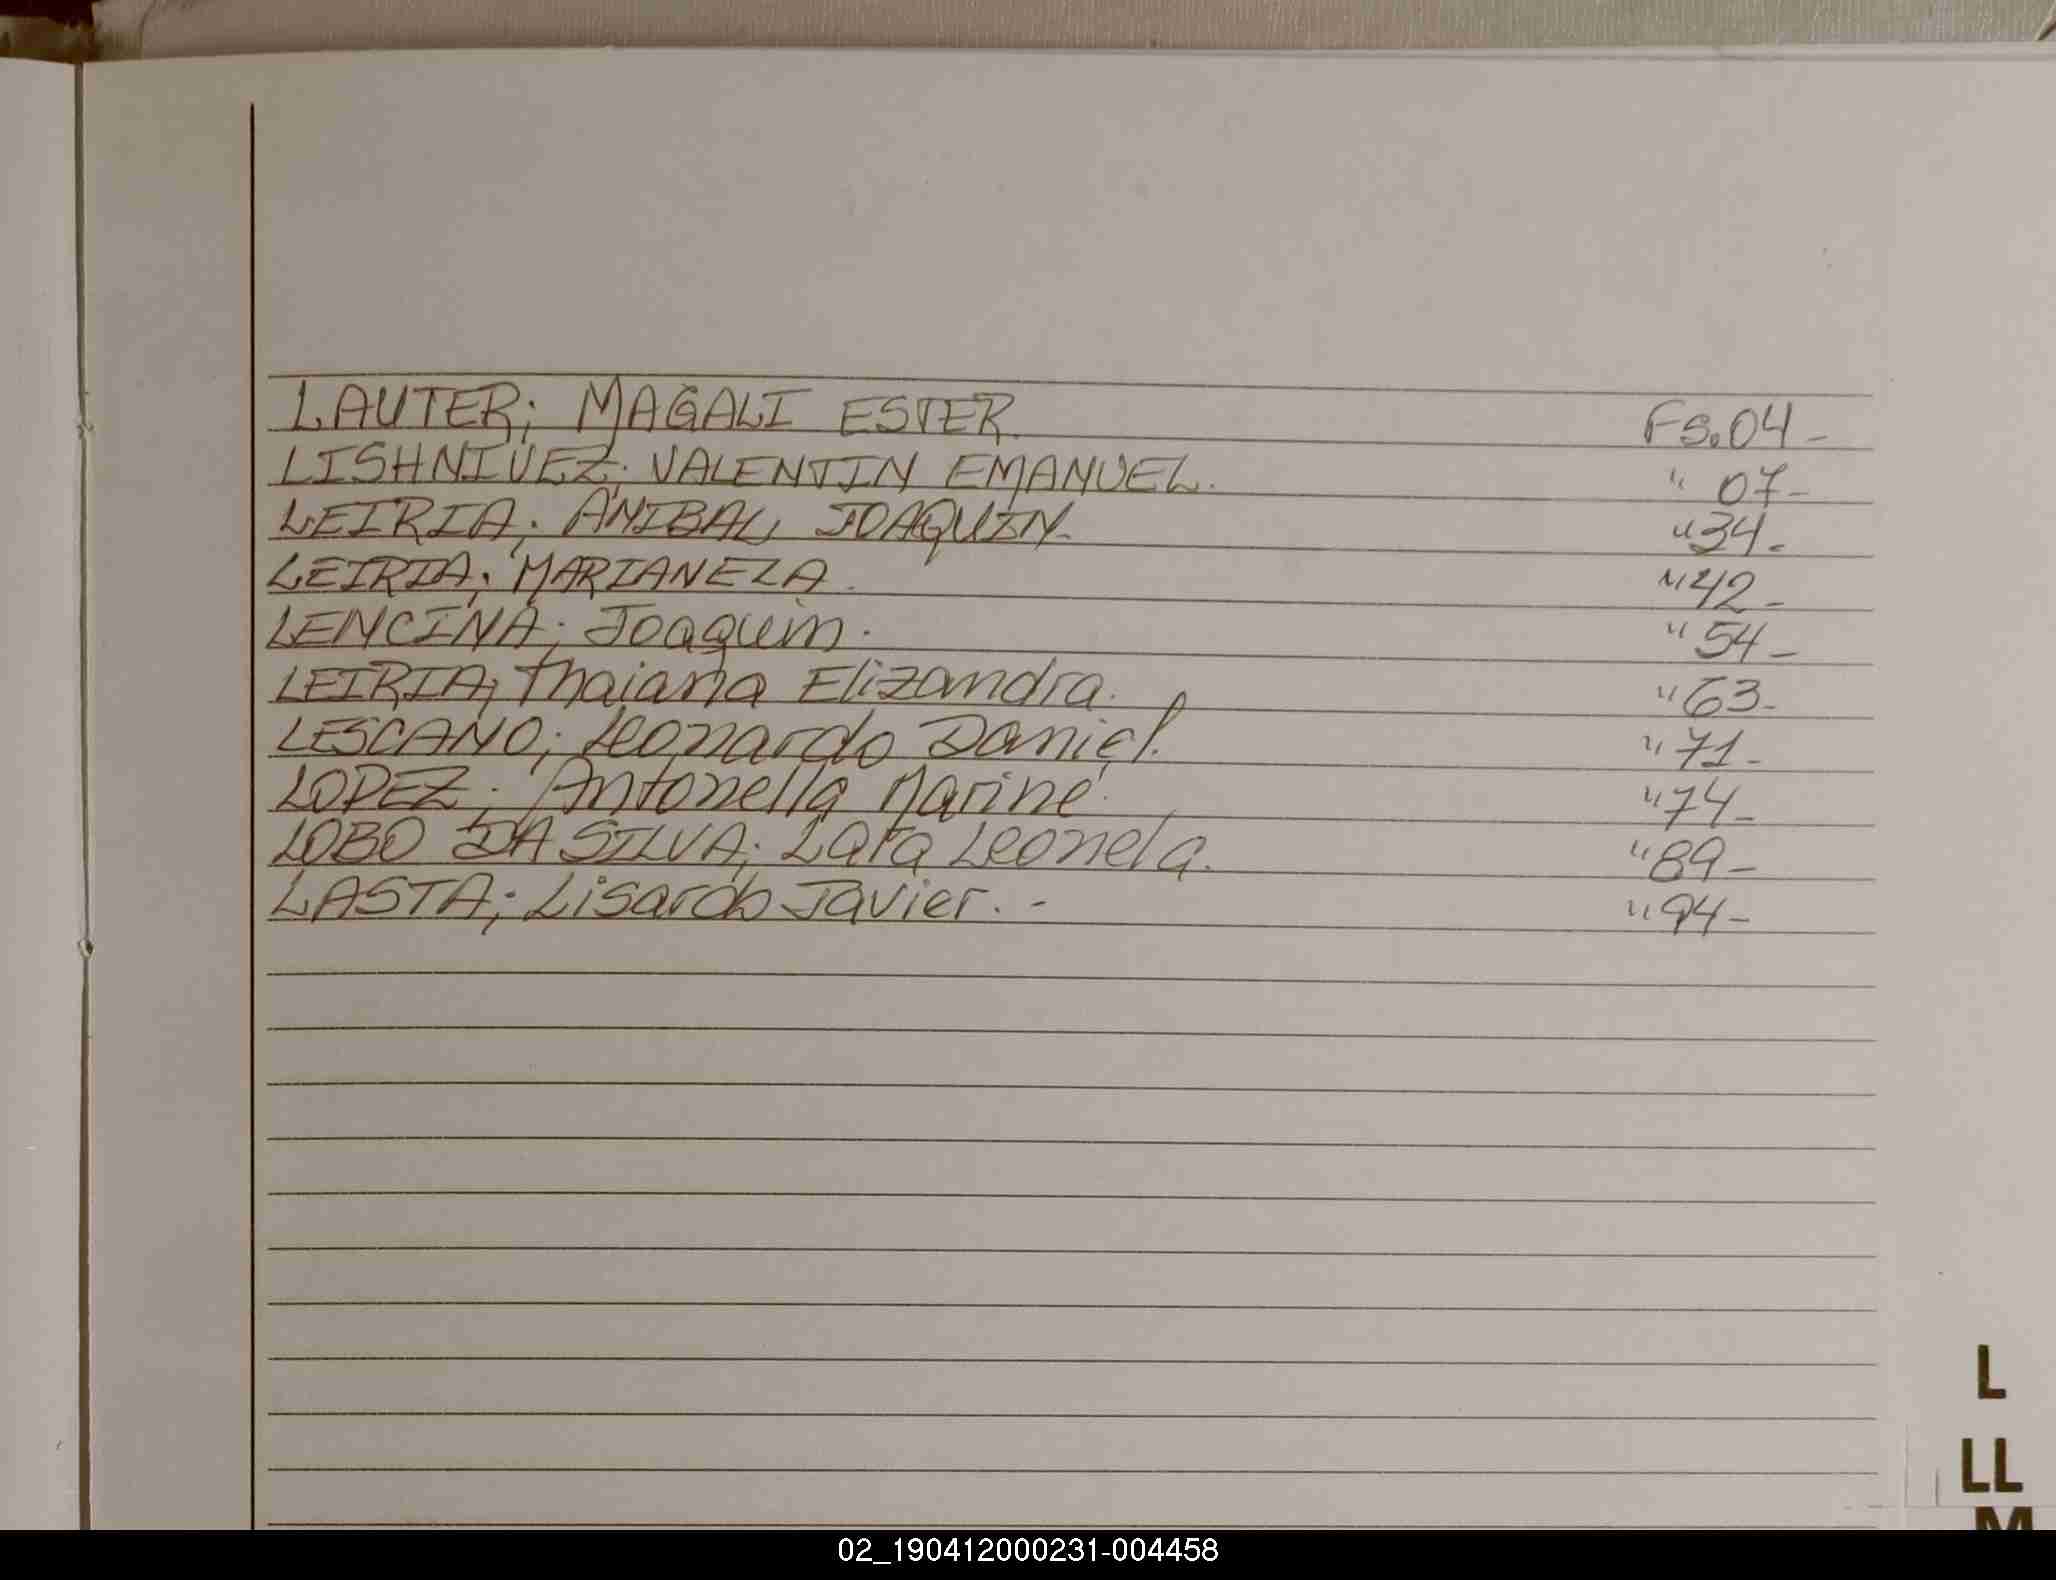 LAUTER; MAGALI ESTER. Fs.04-
LISHNIVEZ; VALENTIN EMANUEL. " 07-
LEIRIA; ANIBAL JOAQUIN- "34-
LEIRIA; MARIANELA. "42-
LENCINA; Joaquin. "54-
LEIRIA; thaiana Elizandra. "63-
LESCANO; Leonardo Daniel. "71-
LOPEZ; Antonella Mariné. "74-
LOBO DA SILVA; Lara Leonela. "89-
LASTA; Lisardo Javier.- "94-
L
LL
M
02_190412000231-004458